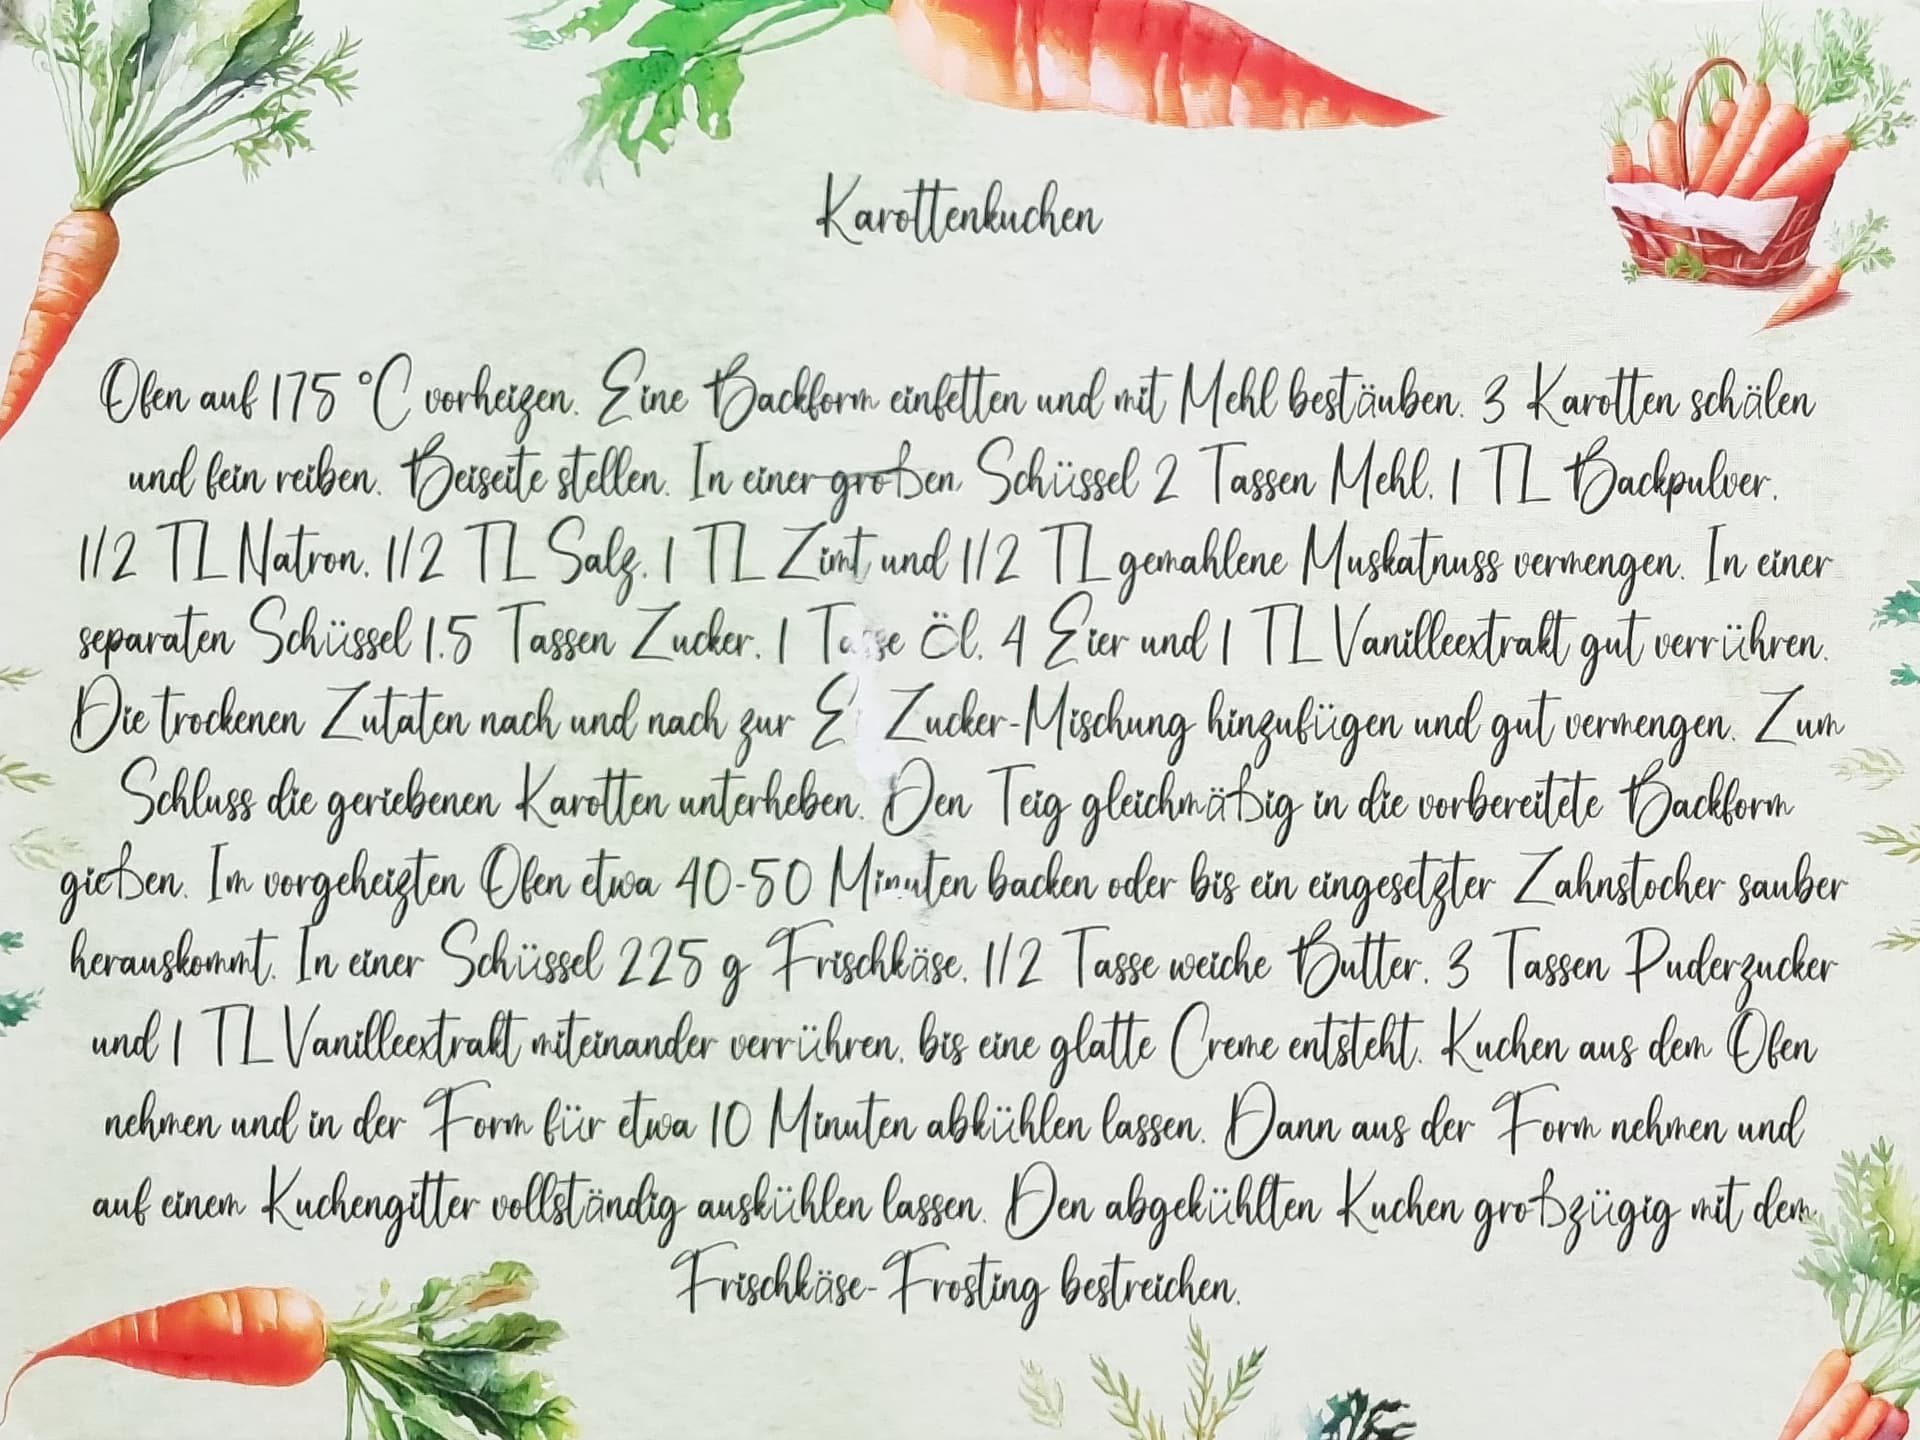 Karottenkuchen
Ofen auf 175 °C vorheizen. Eine Backform einfetten und mit Mehl bestäuben. 3 Karotten schälen
und fein reiben. Beiseite stellen. In einer großen Schüssel 2 Tassen Mehl, 1 TL Backpulver,
1/2 TL Natron, 1/2 TL Salz, 1 TL Zimt und 1/2 TL gemahlene Muskatnuss vermengen. In einer
separaten Schüssel 1,5 Tassen Zucker, 1 Tasse Öl, 4 Eier und 1 TL Vanilleextrakt gut verrühren.
Die trockenen Zutaten nach und nach zur Zucker-Mischung hinzufügen und gut vermengen. Zum
Schluss die geriebenen Karotten unterheben. Den Teig gleichmäßig in die vorbereitete Backform
gießen. Im vorgeheizten Ofen etwa 40-50 Minuten backen oder bis ein eingesetzter Zahnstocher sauber
herauskommt. In einer Schüssel 225 g Frischkäse, 1/2 Tasse weiche Butter, 3 Tassen Puderzucker
und 1 TL Vanilleextrakt miteinander verrühren, bis eine glatte Creme entsteht. Kuchen aus dem Ofen
nehmen und in der Form für etwa 10 Minuten abkühlen lassen. Dann aus der Form nehmen und
auf einem Kuchengitter vollständig auskühlen lassen. Den abgekühlten Kuchen großzügig mit dem
Frischkäse-Frosting bestreichen.